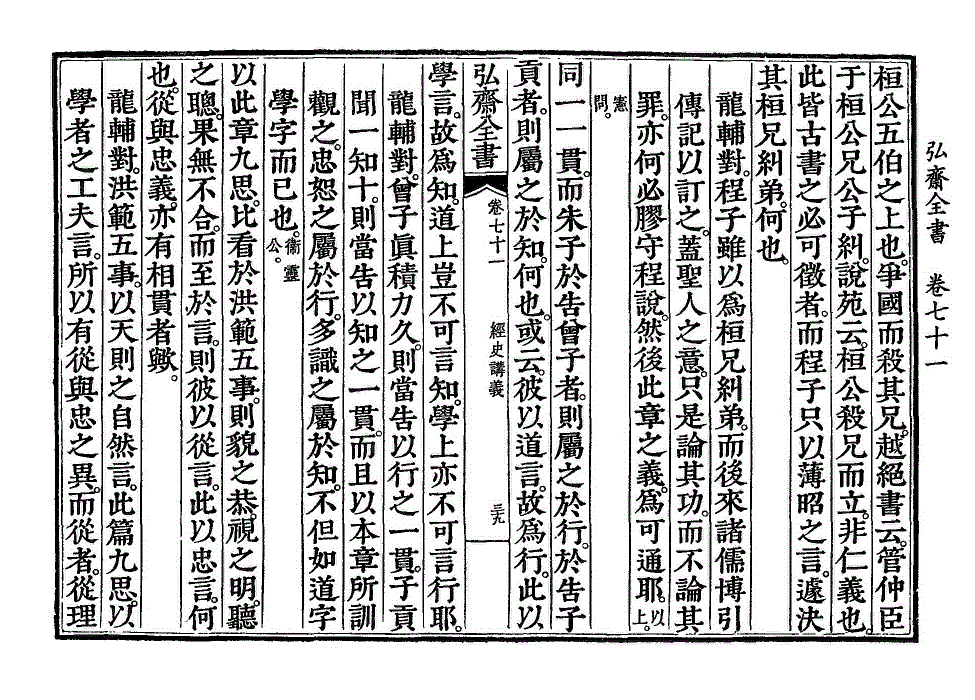 弘齋全書 卷七十一
桓公五伯之上也。爭國而殺其兄。越絕書云。管仲臣
于桓公兄公子糾。說苑云。桓公殺兄而立。非仁義也。
此皆古書之必可徵者。而程子只以薄昭之言。遽決
其桓兄糾弟。何也。
龍輔對。程子雖以爲桓兄糾弟。而後來諸儒博引
傳記以訂之。蓋聖人之意。只是論其功。而不論其
罪。亦何必膠守程說。然後此章之義。爲可通耶。以上。
憲問。
同一一貫。而朱子於告曾子者。則屬之於行。於告子
貢者。則屬之於知。何也。或云。彼以道言。故爲行。此以
弘齋全書 卷七十一 經史講義 三九
學言。故爲知。道上豈不可言知。學上亦不可言行耶。
龍輔對。曾子眞積力久。則當告以行之一貫。子貢
聞一知十。則當告以知之一貫。而且以本章所訓
觀之。忠恕之屬於行。多識之屬於知。不但如道字
學字而已也。衞靈公。
以此章九思。比看於洪範五事。則貌之恭。視之明。聽
之聰。果無不合。而至於言。則彼以從言。此以忠言。何
也。從與忠義。亦有相貫者歟。
龍輔對。洪範五事。以天則之自然言。此篇九思。以
學者之工夫言。所以有從與忠之異。而從者。從理